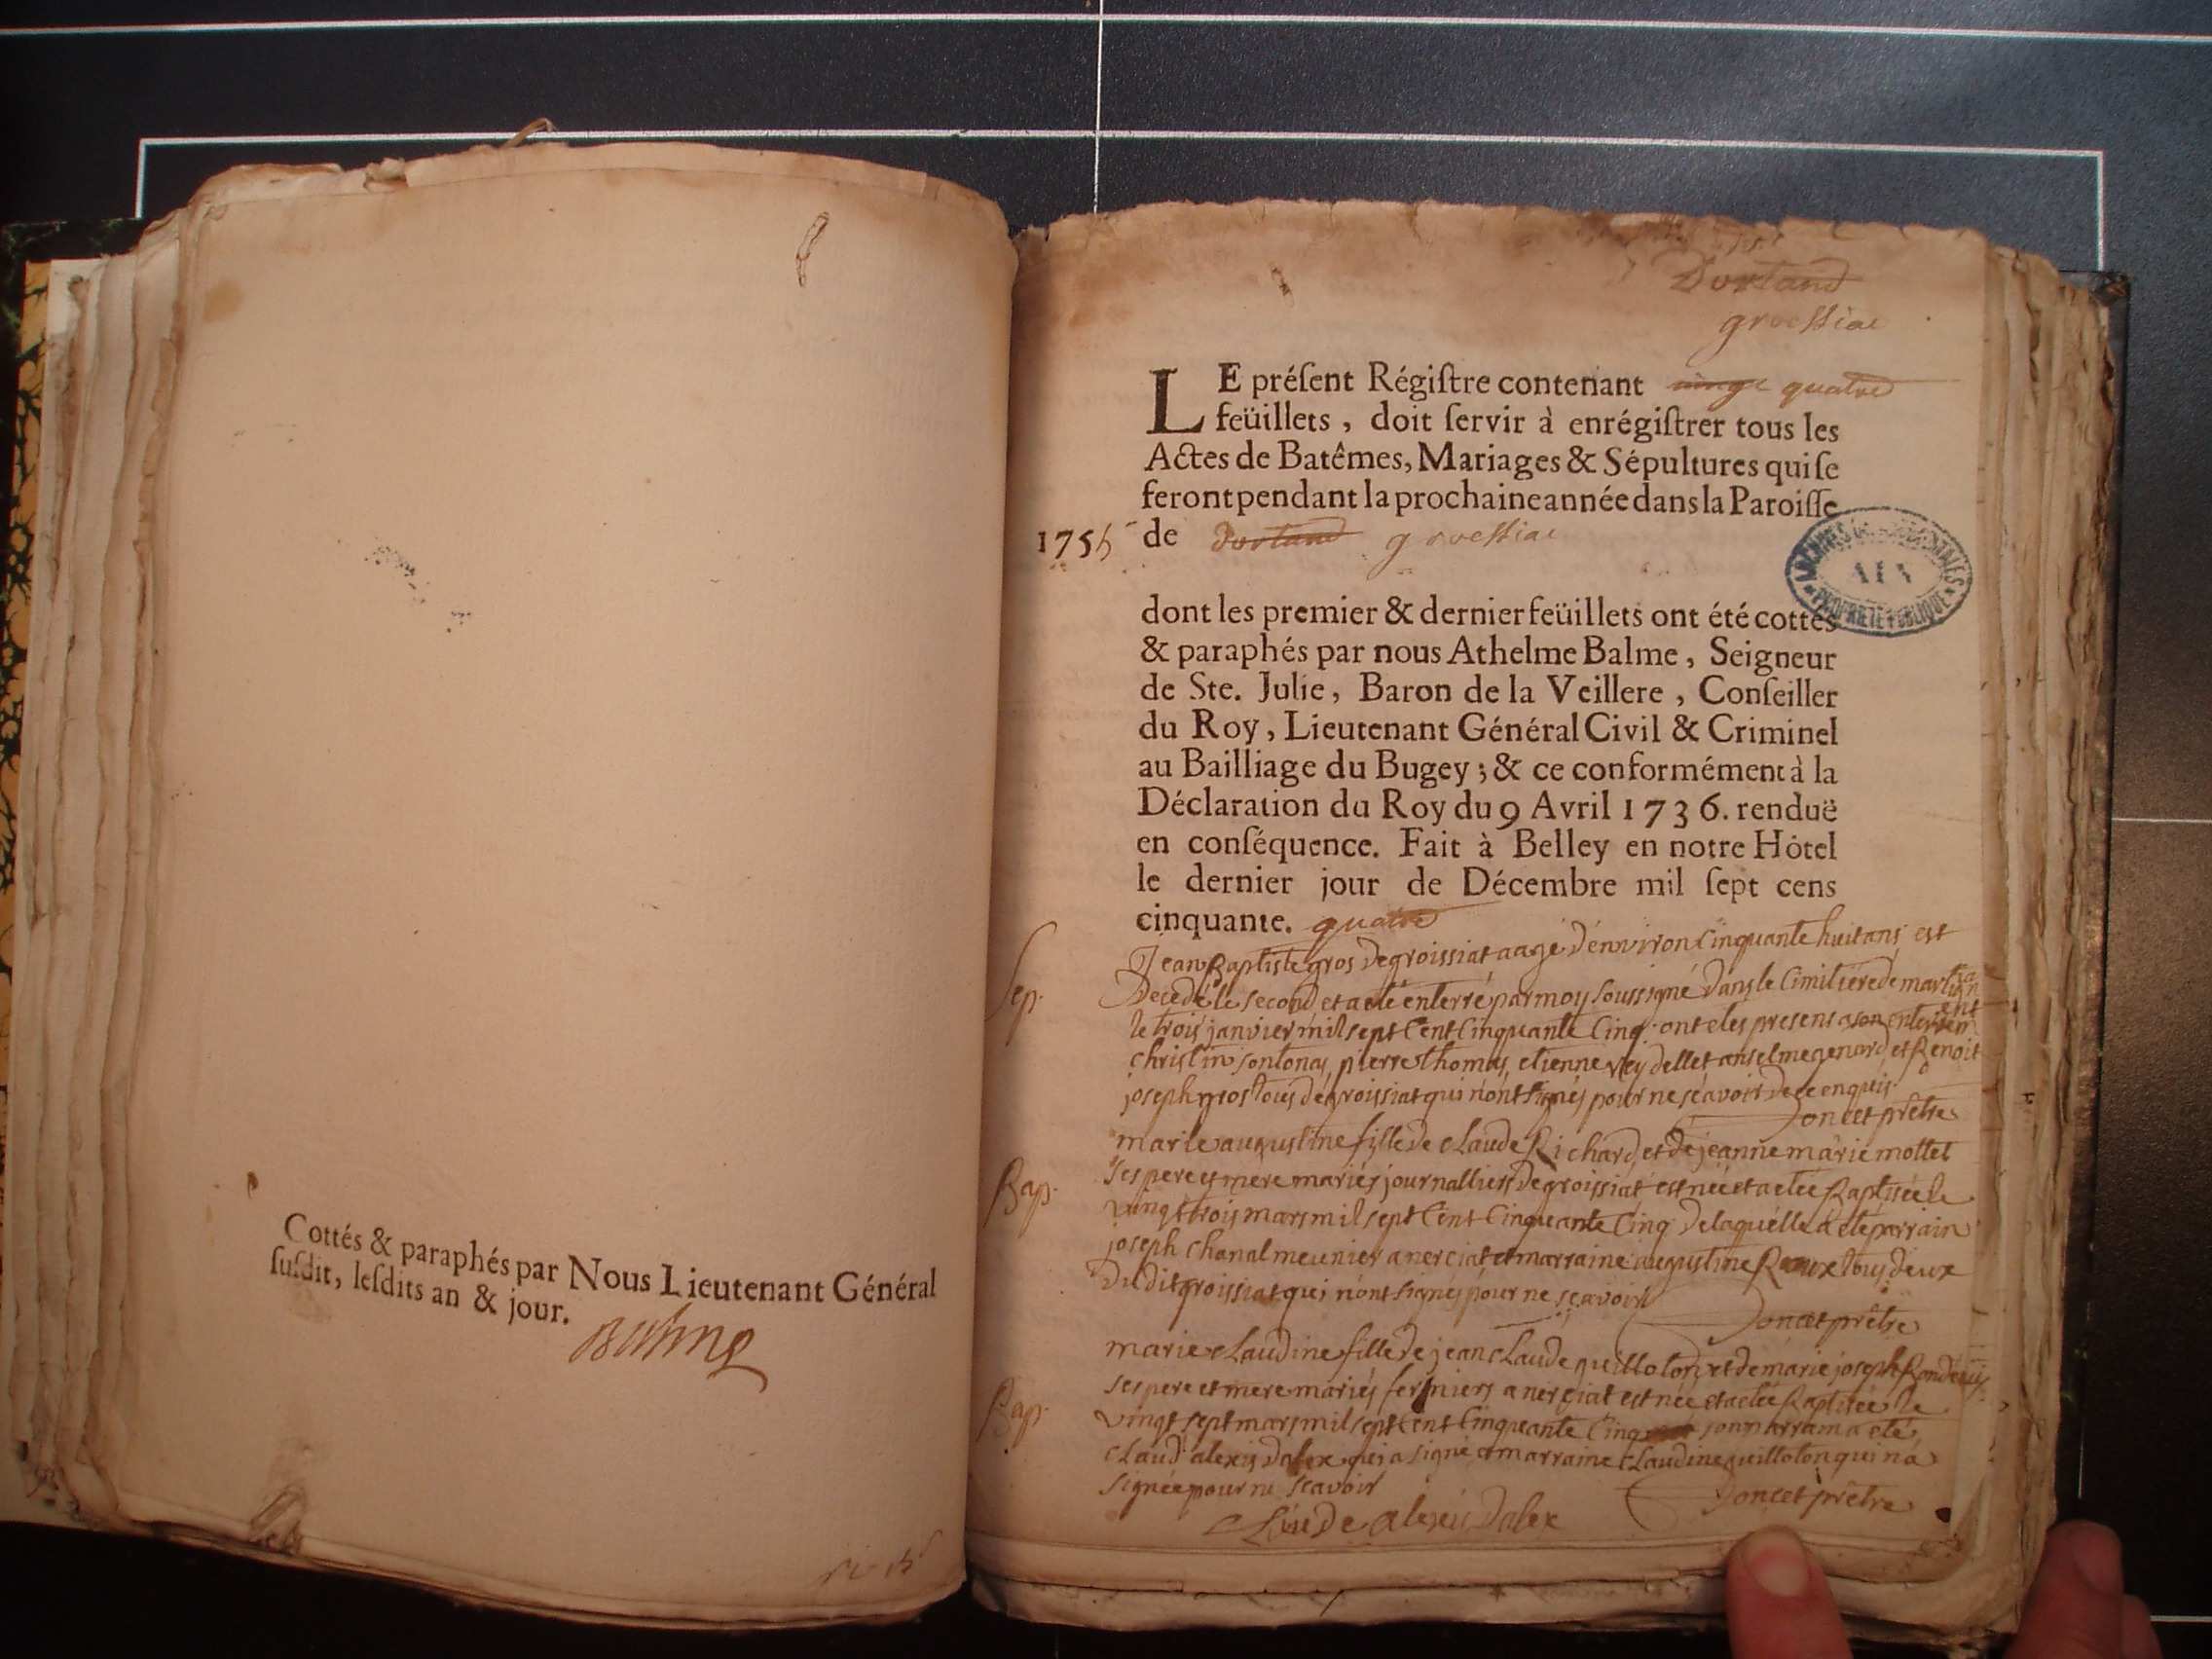 Cottés & paraphés par Nous Lieutenant Général
ſuſdit, leſdits an & jour.
Balme
Dortand
groessiac
LE préſent Régiſtre contenant vingt quatre
feüillets, doit ſervir à enrégiſtrer tous les
Actes de Batêmes, Mariages & Sépultures qui ſe
feront pendant la prochaine année dans la Paroiſſe
1755 de Dortand groessiac
ARCHIVES DÉPARTEMENTALES
AIN
PROPRIETE PUBLIQUE
dont les premier & dernier feüillets ont été cottés
& paraphés par nous Athelme Balme, Seigneur
de Ste. Julie, Baron de la Veillere, Conſeiller
du Roy, Lieutenant Général Civil & Criminel
au Bailliage du Bugey; & ce conformément à la
Déclaration du Roy du 9 Avril 1736. renduë
en conſéquence. Fait à Belley en notre Hôtel
le dernier jour de Décembre mil ſept cens
cinquante. quatre
Sep.
Jean Baptiste gros de groissiat aagé d'environ cinquante huit ans est
Decedé le second et a eté enterré par moy soussigné dans le cimitiere de
le trois janvier mil sept cent cinquante cinq. ont etes presens a son enterrement
christin sontonas, pierre thomas, etienne Reydellet anselme genard et Benoit
joseph gros tous de groissiat qui n'ont signés pour ne sçavoir de ce enquis
Doncet prêtre
Bap.
marie augustine fille de claude Richard et de jeanne marie mollet
ses pere et mere mariés journalliers de groissiat est née et a etée Baptisée le
vingt trois mars mil sept cent cinquante cinq de laquelle a eté parrain
joseph chanal meunier a nerciat et marraine augustine Roux tous deux
Dudit groissiat qui n'ont signés pour ne sçavoir
Doncet prêtre
Bap.
marie claudine fille de jean claude guilloton et de marie joseph
ses pere et mere mariés fermiers a nerciat est née et a etée Baptisée le
vingt sept mars mil sept cent cinquante cinq son parrain a eté
claud alexis Dalex qui a signé et marraine claudine guilloton qui n'a
signée pour ne scavoir
Doncet prêtre
Claude alexis Dalex